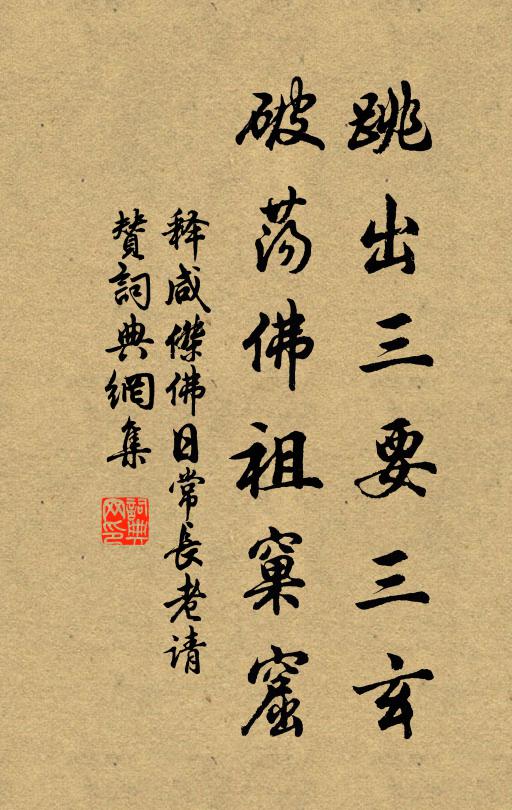 跳出三要三玄
破荡佛祖窠窟
释咸傑佛日常長老请
赞詞典網集
詞典
网印